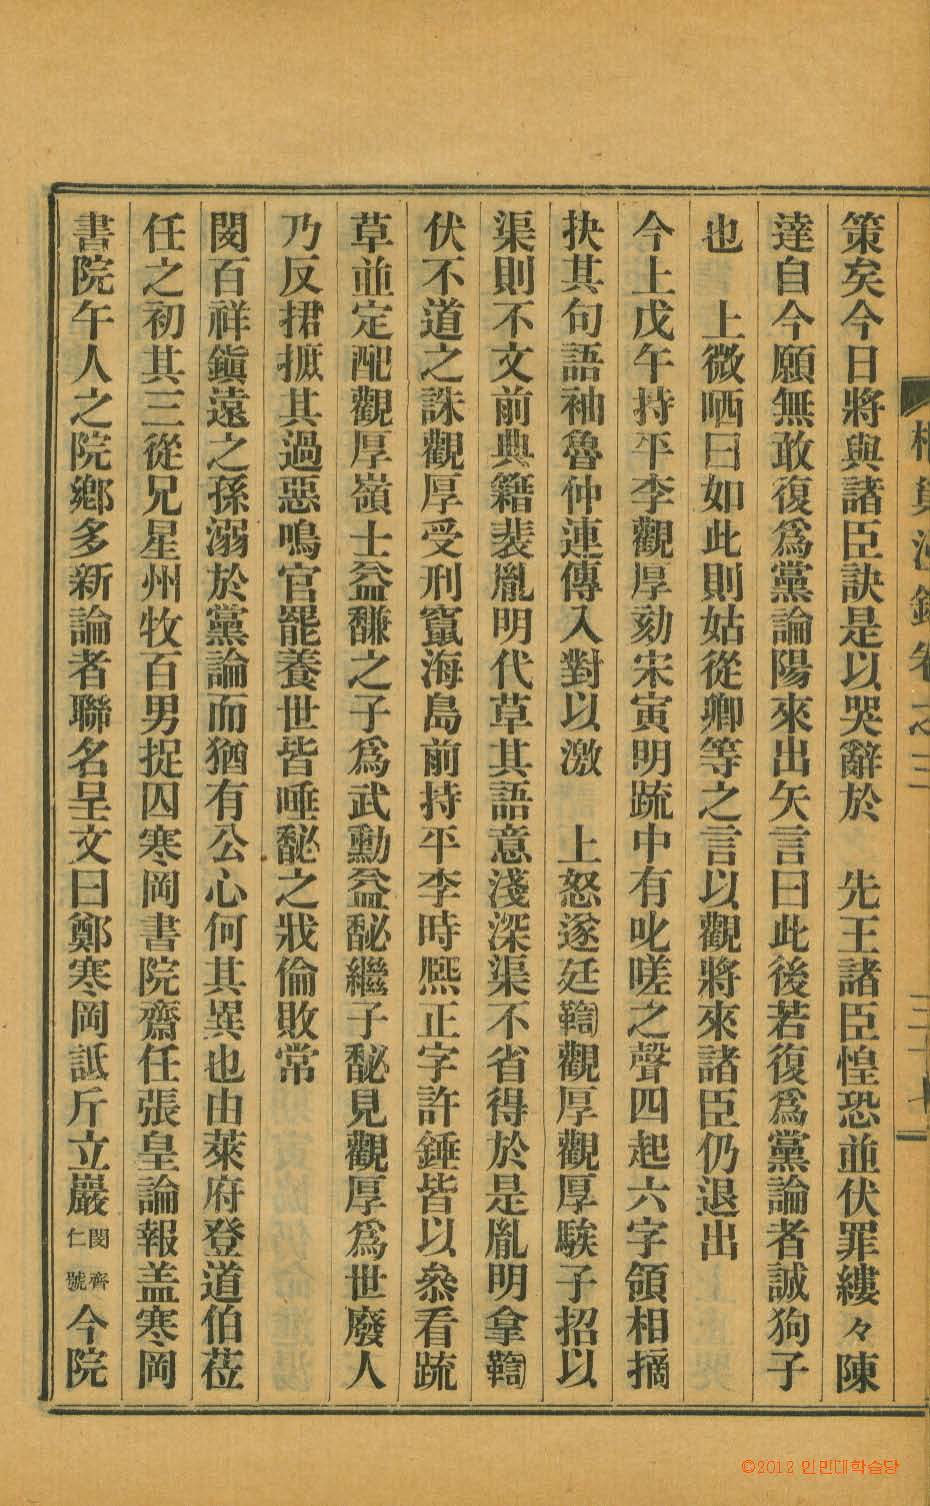 策矣今日將與諸臣訣是以哭辭於　先王諸臣惶恐並伏罪縷々陳
達自今願無敢復爲黨論陽來出矢言曰此後若復爲黨論者誠狗子
也　上微哂曰如此則姑從卿等之言以觀將來諸臣仍退出
今上戊午持平李觀厚劾宋寅明疏中有叱嗟之聲四起六字領相摘
抉其句語袖魯仲連傳入對以激　上怒遂廷鞫觀厚觀厚騃子招以
渠則不文前典籍裴胤明代草其語意淺深渠不省得於是胤明拿鞫
伏不道之誅觀厚受刑竄海島前持平李時熙正字許錘皆以叅看疏
草並定配觀厚嶺士益馦之子爲武勳益馝繼子馝見觀厚爲世廢人
乃反捃摭其過惡鳴官罷養世皆唾馝之戕倫敗常
閔百祥鎭遠之孫溺於黨論而猶有公心何其異也由萊府登道伯莅
任之初其三從兄星州牧百男捉囚寒岡書院齋任張皇論報盖寒岡
書院午人之院鄕多新論者聯名呈文曰鄭寒岡詆斥立巖閔齊仁號今院
卷之三
三十七
©2012 인민대학습당